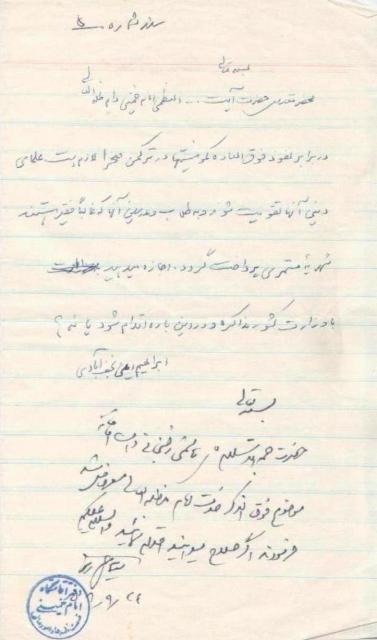 سند شماره ۵
بسمه تعالی
محضر مقدس حضرت آیت ... العظمی امام خمینی دام ظله العالی
در برابر نفوذ فوق العاده کمونیستها در ترکمن صحرا لازم است علمای
دینی آنها تقویت شوند و به طلاب و مدرسین آنها که غالباً فقیر هستند
شهریهٔ مستمری پرداخت گردد. اجازه میدهید
با وزارت کشور مذاکره و در این باره اقدام شود یا نه؟
ابراهیم امینی نجف آبادی
بسمه تعالی
حضرت حجة الاسلام هاشمی رفسنجانی دامت افاضاته
موضوع فوق الذکر خدمت امام مد ظله العالی معروض شد
فرمودند اگر صلاح میدانید اقدام نمائید والسلام علیکم
دفتر
امام خمینی